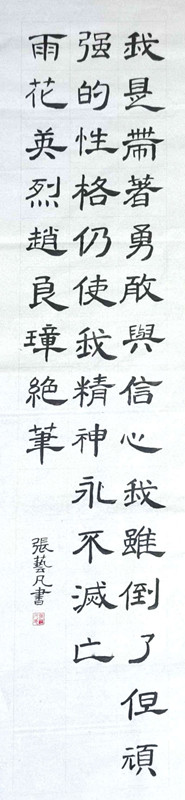 我是帶著勇敢與信心我雖倒了但頑
强的性格仍使我精神永不滅亡
雨花英烈趙良璋絶筆
張藝凡書